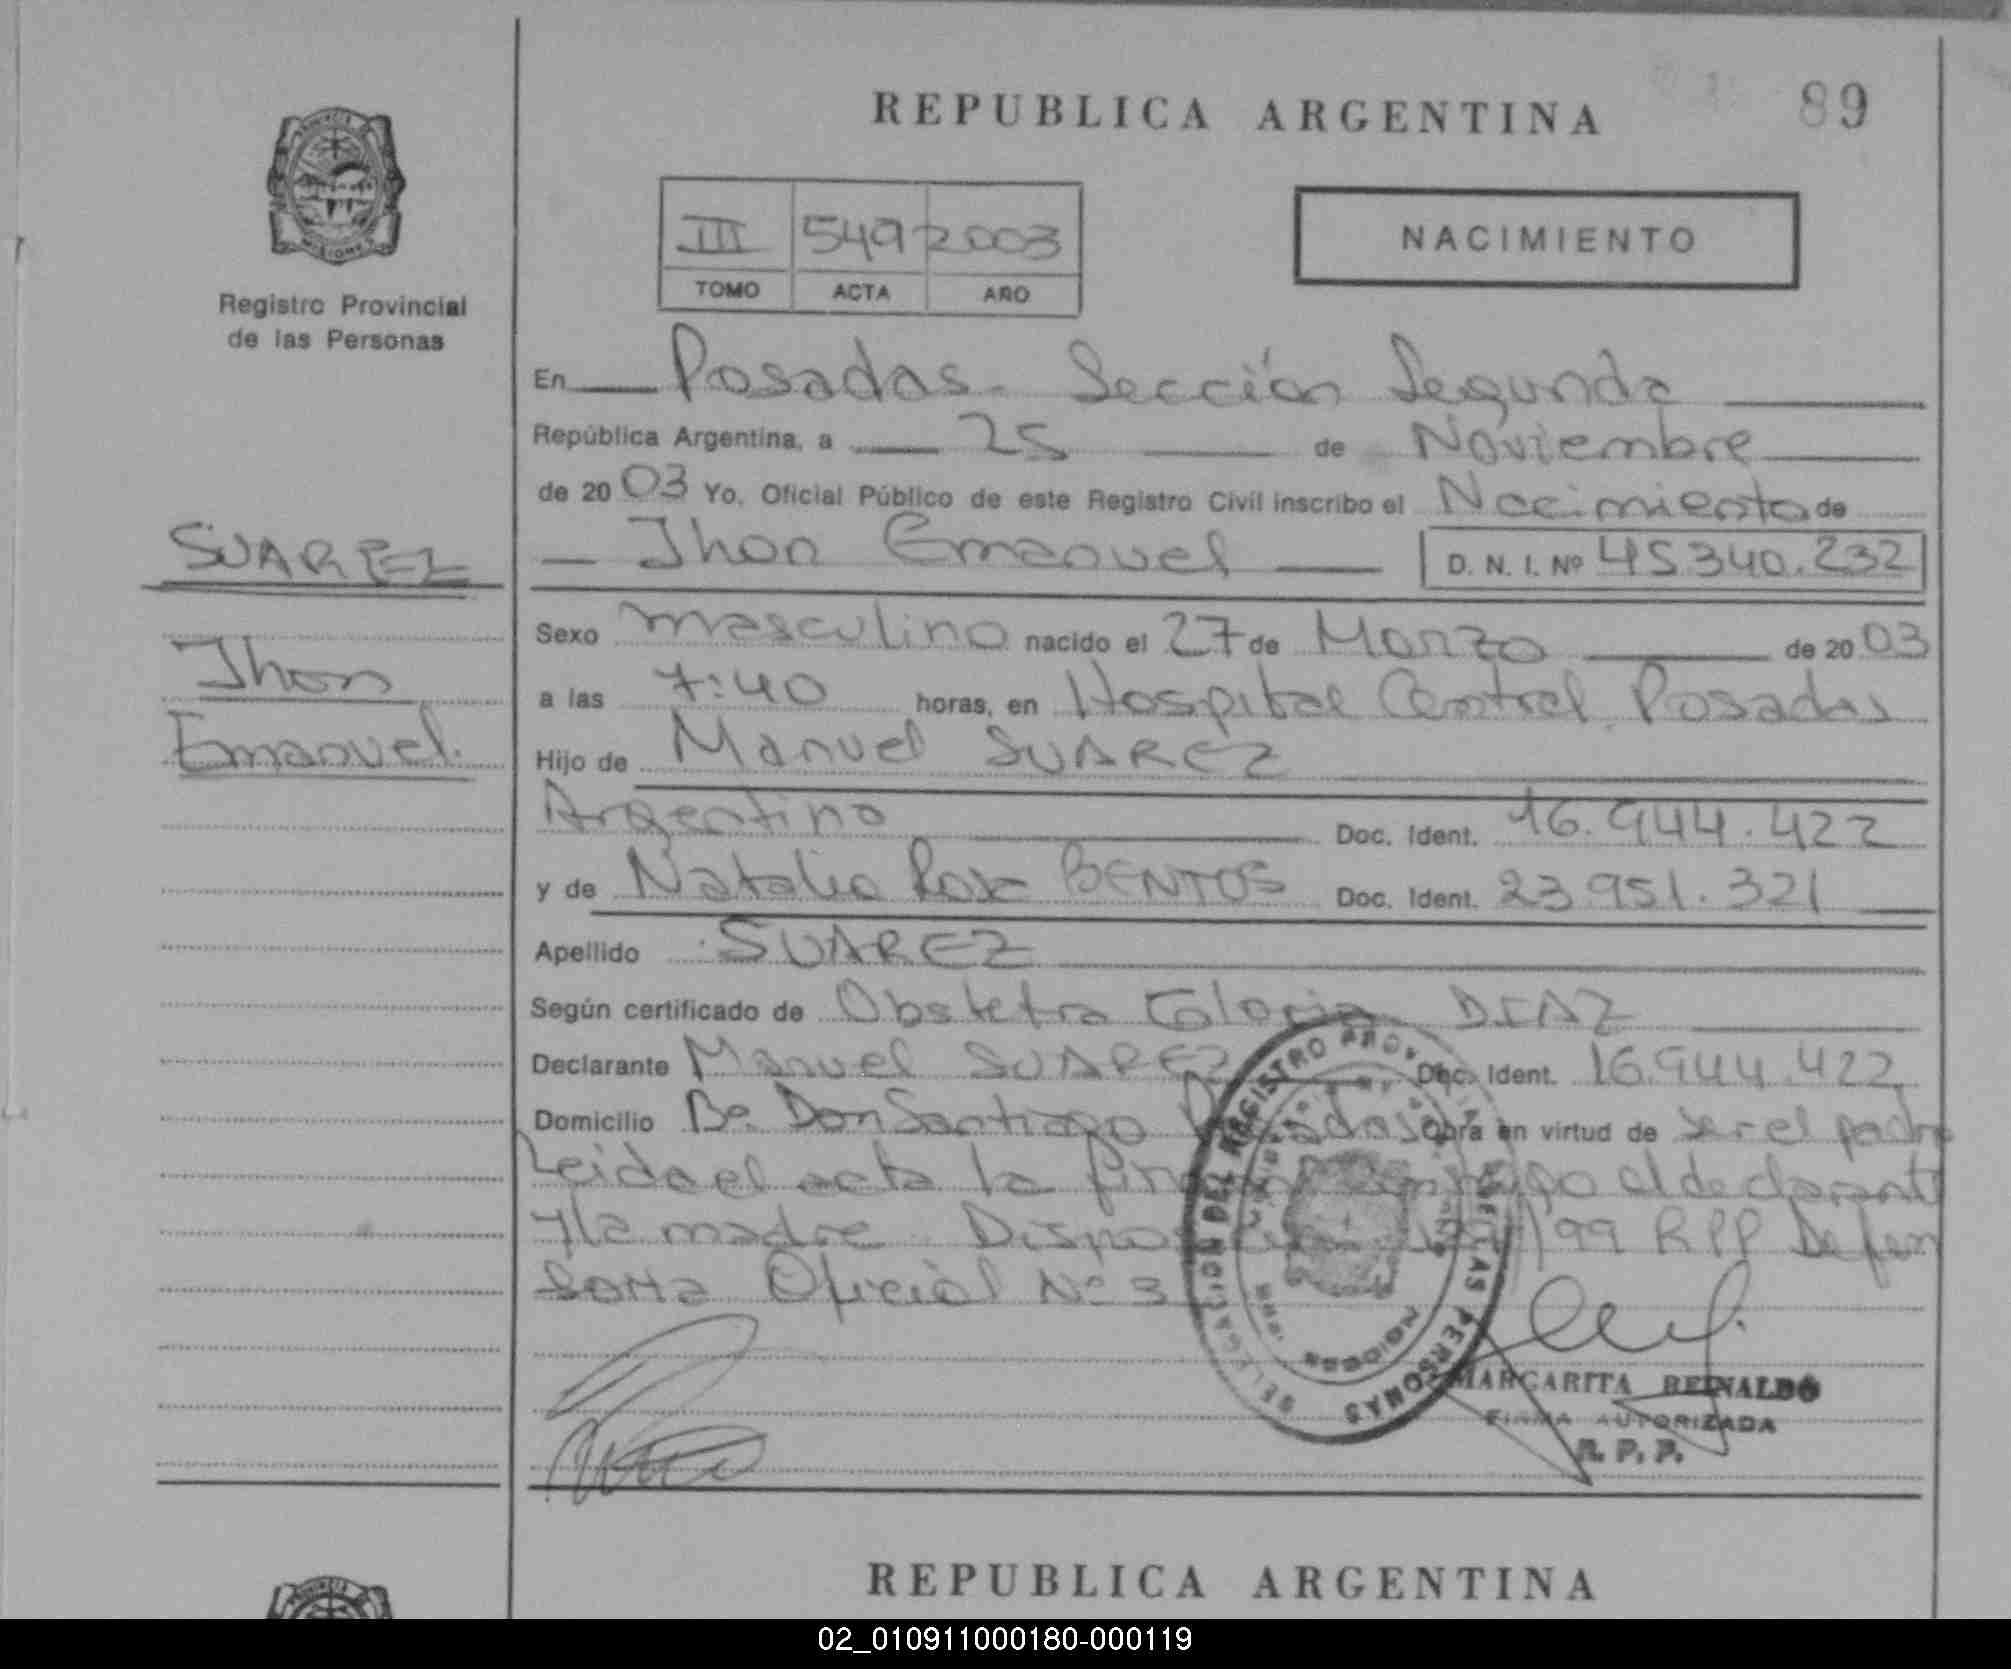 REPUBLICA ARGENTINA
89
III 549 2003
TOMO ACTA AÑO
NACIMIENTO
PROVINCIA DE
MISIONES
Registro Provincial
de las Personas
En Posadas - Sección Segunda
República Argentina, a 25 de Noviembre
de 2003 Yo, Oficial Público de este Registro Civil inscribo el Nacimiento de
Jhon Emanuel D. N. I. Nº 45.340.232
SUAREZ
Jhon
Emanuel.
Sexo masculino nacido el 27 de Marzo de 2003
a las 7:40 horas, en Hospital Central Posadas
Hijo de Manuel SUAREZ
Argentino Doc. Ident. 16.944.422
y de Natalia Rosa BENTOS Doc. Ident. 23.951.321
Apellido SUAREZ
Según certificado de Obstetra Gloria DIAZ
Declarante Manuel SUAREZ Doc. Ident. 16.944.422
Domicilio Bº. Don Santiago Posadas Obra en virtud de ser el padre
Leida el acta la firman conmigo el declarante
y la madre. /99 RPP Defen
soria Oficial Nº 3
DELEGACION DEL REGISTRO PROVINCIAL DE LAS PERSONAS
MARGARITA REINALDO
FIRMA AUTORIZADA
R. P. P.
REPUBLICA ARGENTINA
02_010911000180-000119